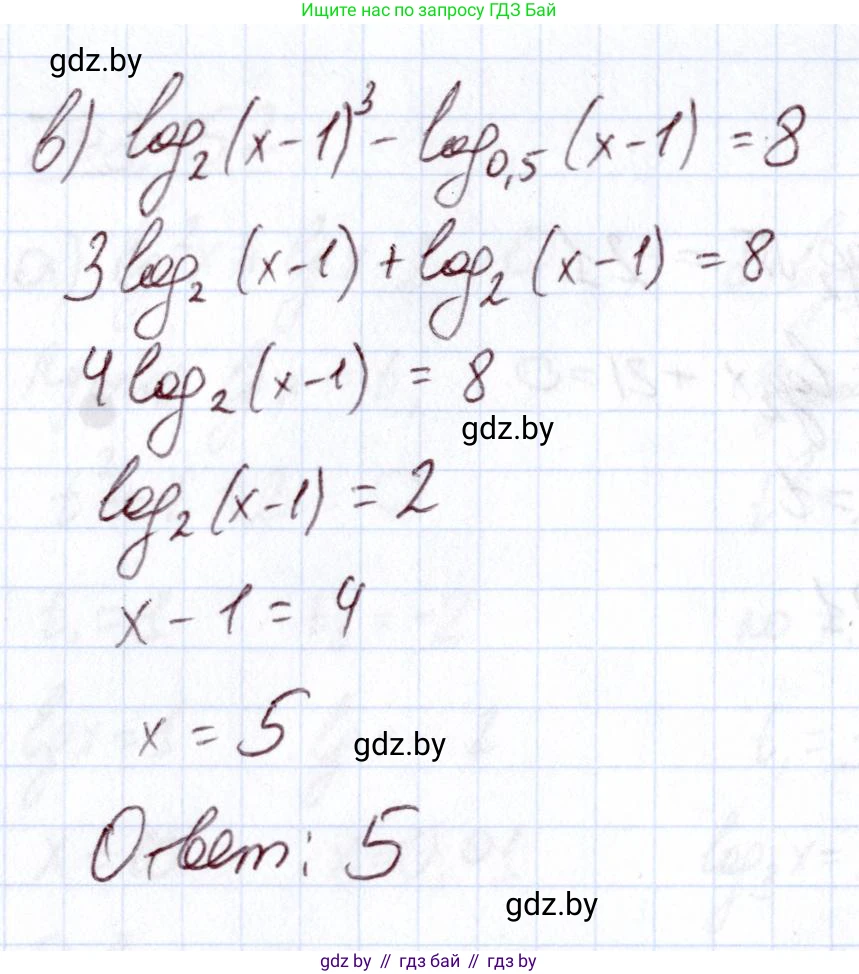 Ищите нас по запросу ГДЗ Бай
gdz.by
в) log₂(x-1)³ - log₀,₅(x-1) = 8
3log₂(x-1) + log₂(x-1) = 8
4log₂(x-1) = 8
gdz.by
log₂(x-1) = 2
x - 1 = 4
x = 5
gdz.by
Ответ: 5
gdz.by
gdz by // гдз бай // gdz by